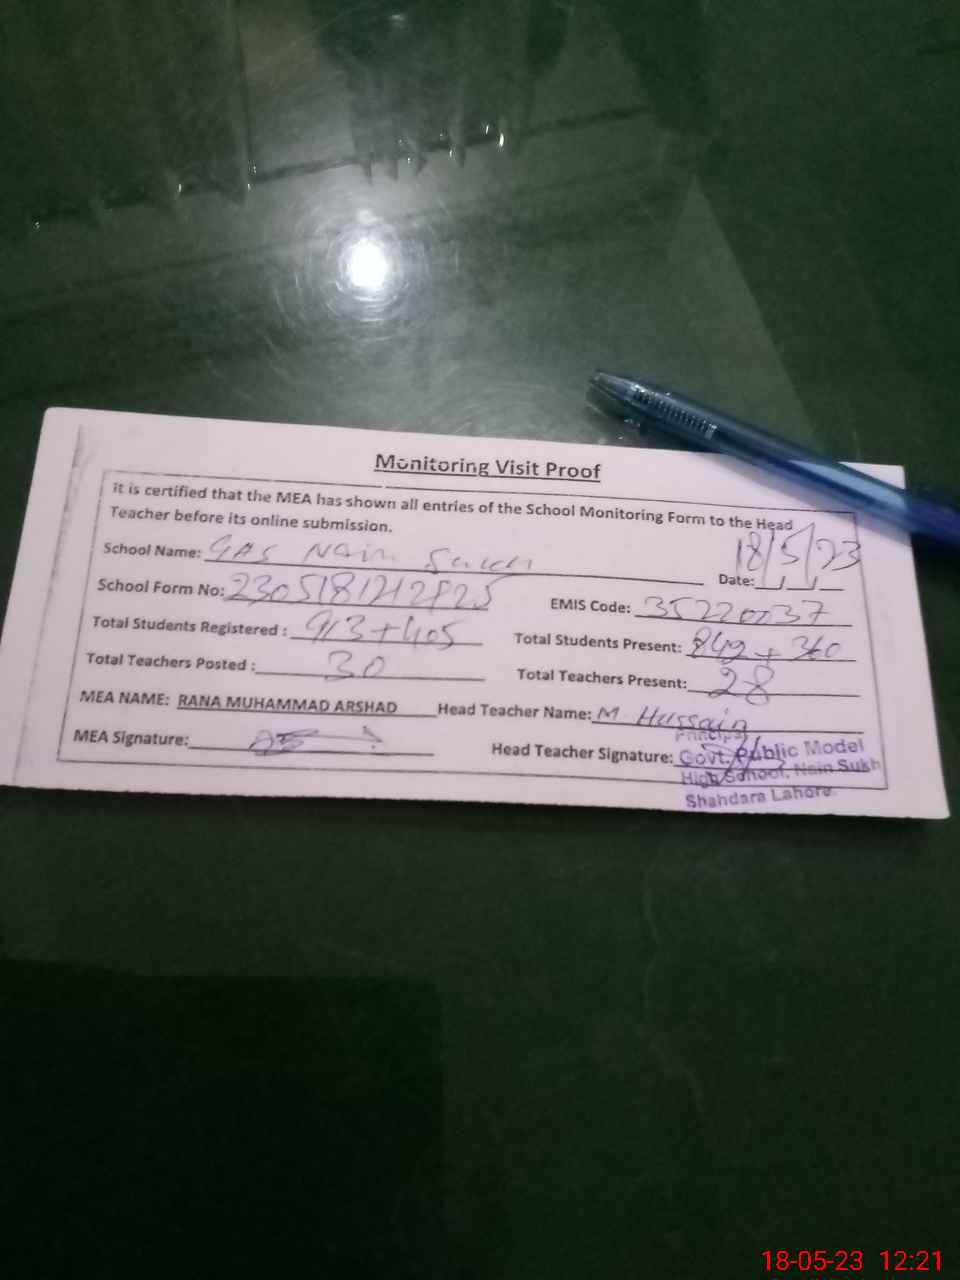 Monitoring Visit Proof
it is certified that the MEA has shown all entries of the School Monitoring Form to the Head
Teacher before its online submission.
School Name: Nain Sukh
Date: 18/5/23
School Form No:
EMIS Code: 35220037
Total Students Registered : 913+405
Total Students Present: 842+360
Total Teachers Posted : 30
Total Teachers Present: 28
MEA NAME: RANA MUHAMMAD ARSHAD
Head Teacher Name: M Hussain
MEA Signature:
Head Teacher Signature:
Principal
Govt. Public Model
High School, Nain Sukh
Shahdara Lahore.
18-05-23 12:21